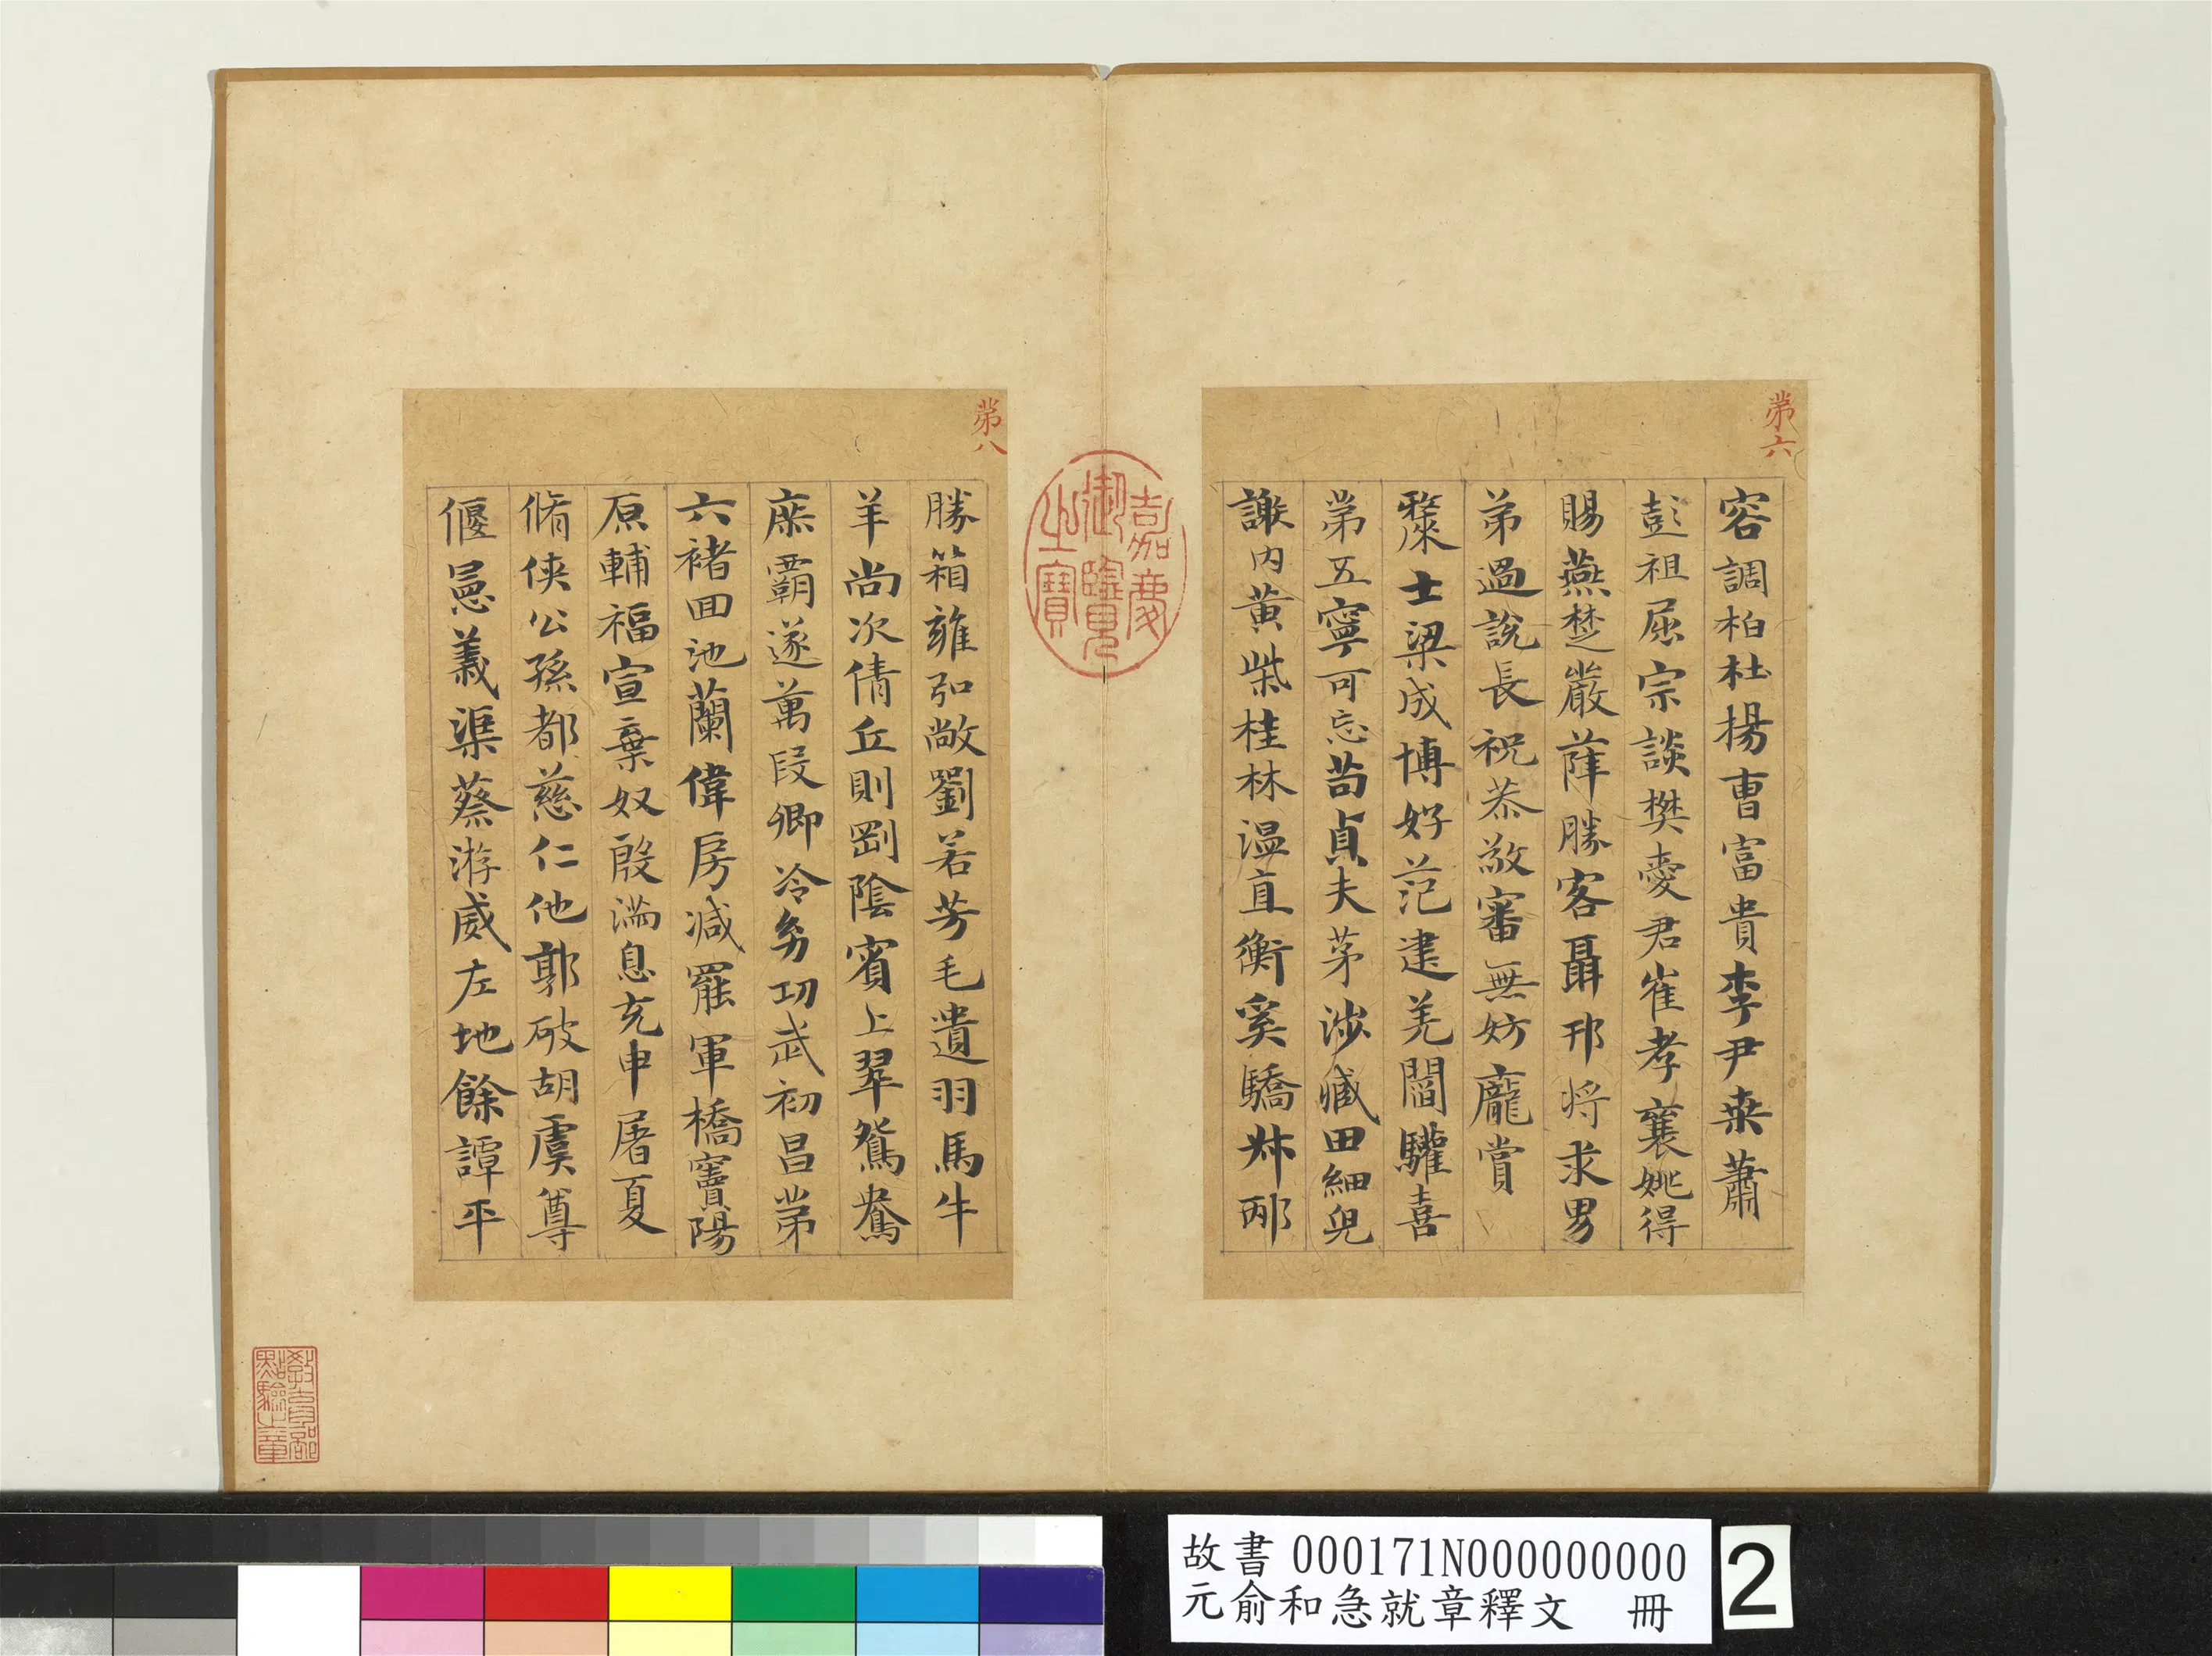 第六
容調柏杜揚曹富貴李尹桒蕭
彭祖屈宗談樊愛君崔孝襄姚得
賜燕楚嚴薛勝客聶邘将求男
弟過說長祝恭敬審無妨龐賞
士梁成博好范建羌閻驩喜
第五寧可忘苟貞夫茅涉臧田細兒
謝內黄柴桂林溫直衡奚驕叔邴
嘉慶御覽之寶
第八
勝箱雍弘敞劉若芳毛遺羽馬牛
羊尚次倩丘則剛陰賓上翠鴛鴦
庶霸遂萬段卿冷幼功武初昌第
六褚回池蘭偉房減罷軍橋竇陽
原輔福宣棄奴殷滿息充申屠夏
脩俠公孫都慈仁他郭破胡虞尊
偃㥯義渠蔡游威左地餘譚平
教育部點驗之章
故書 000171N000000000
元俞和急就章釋文 冊
2